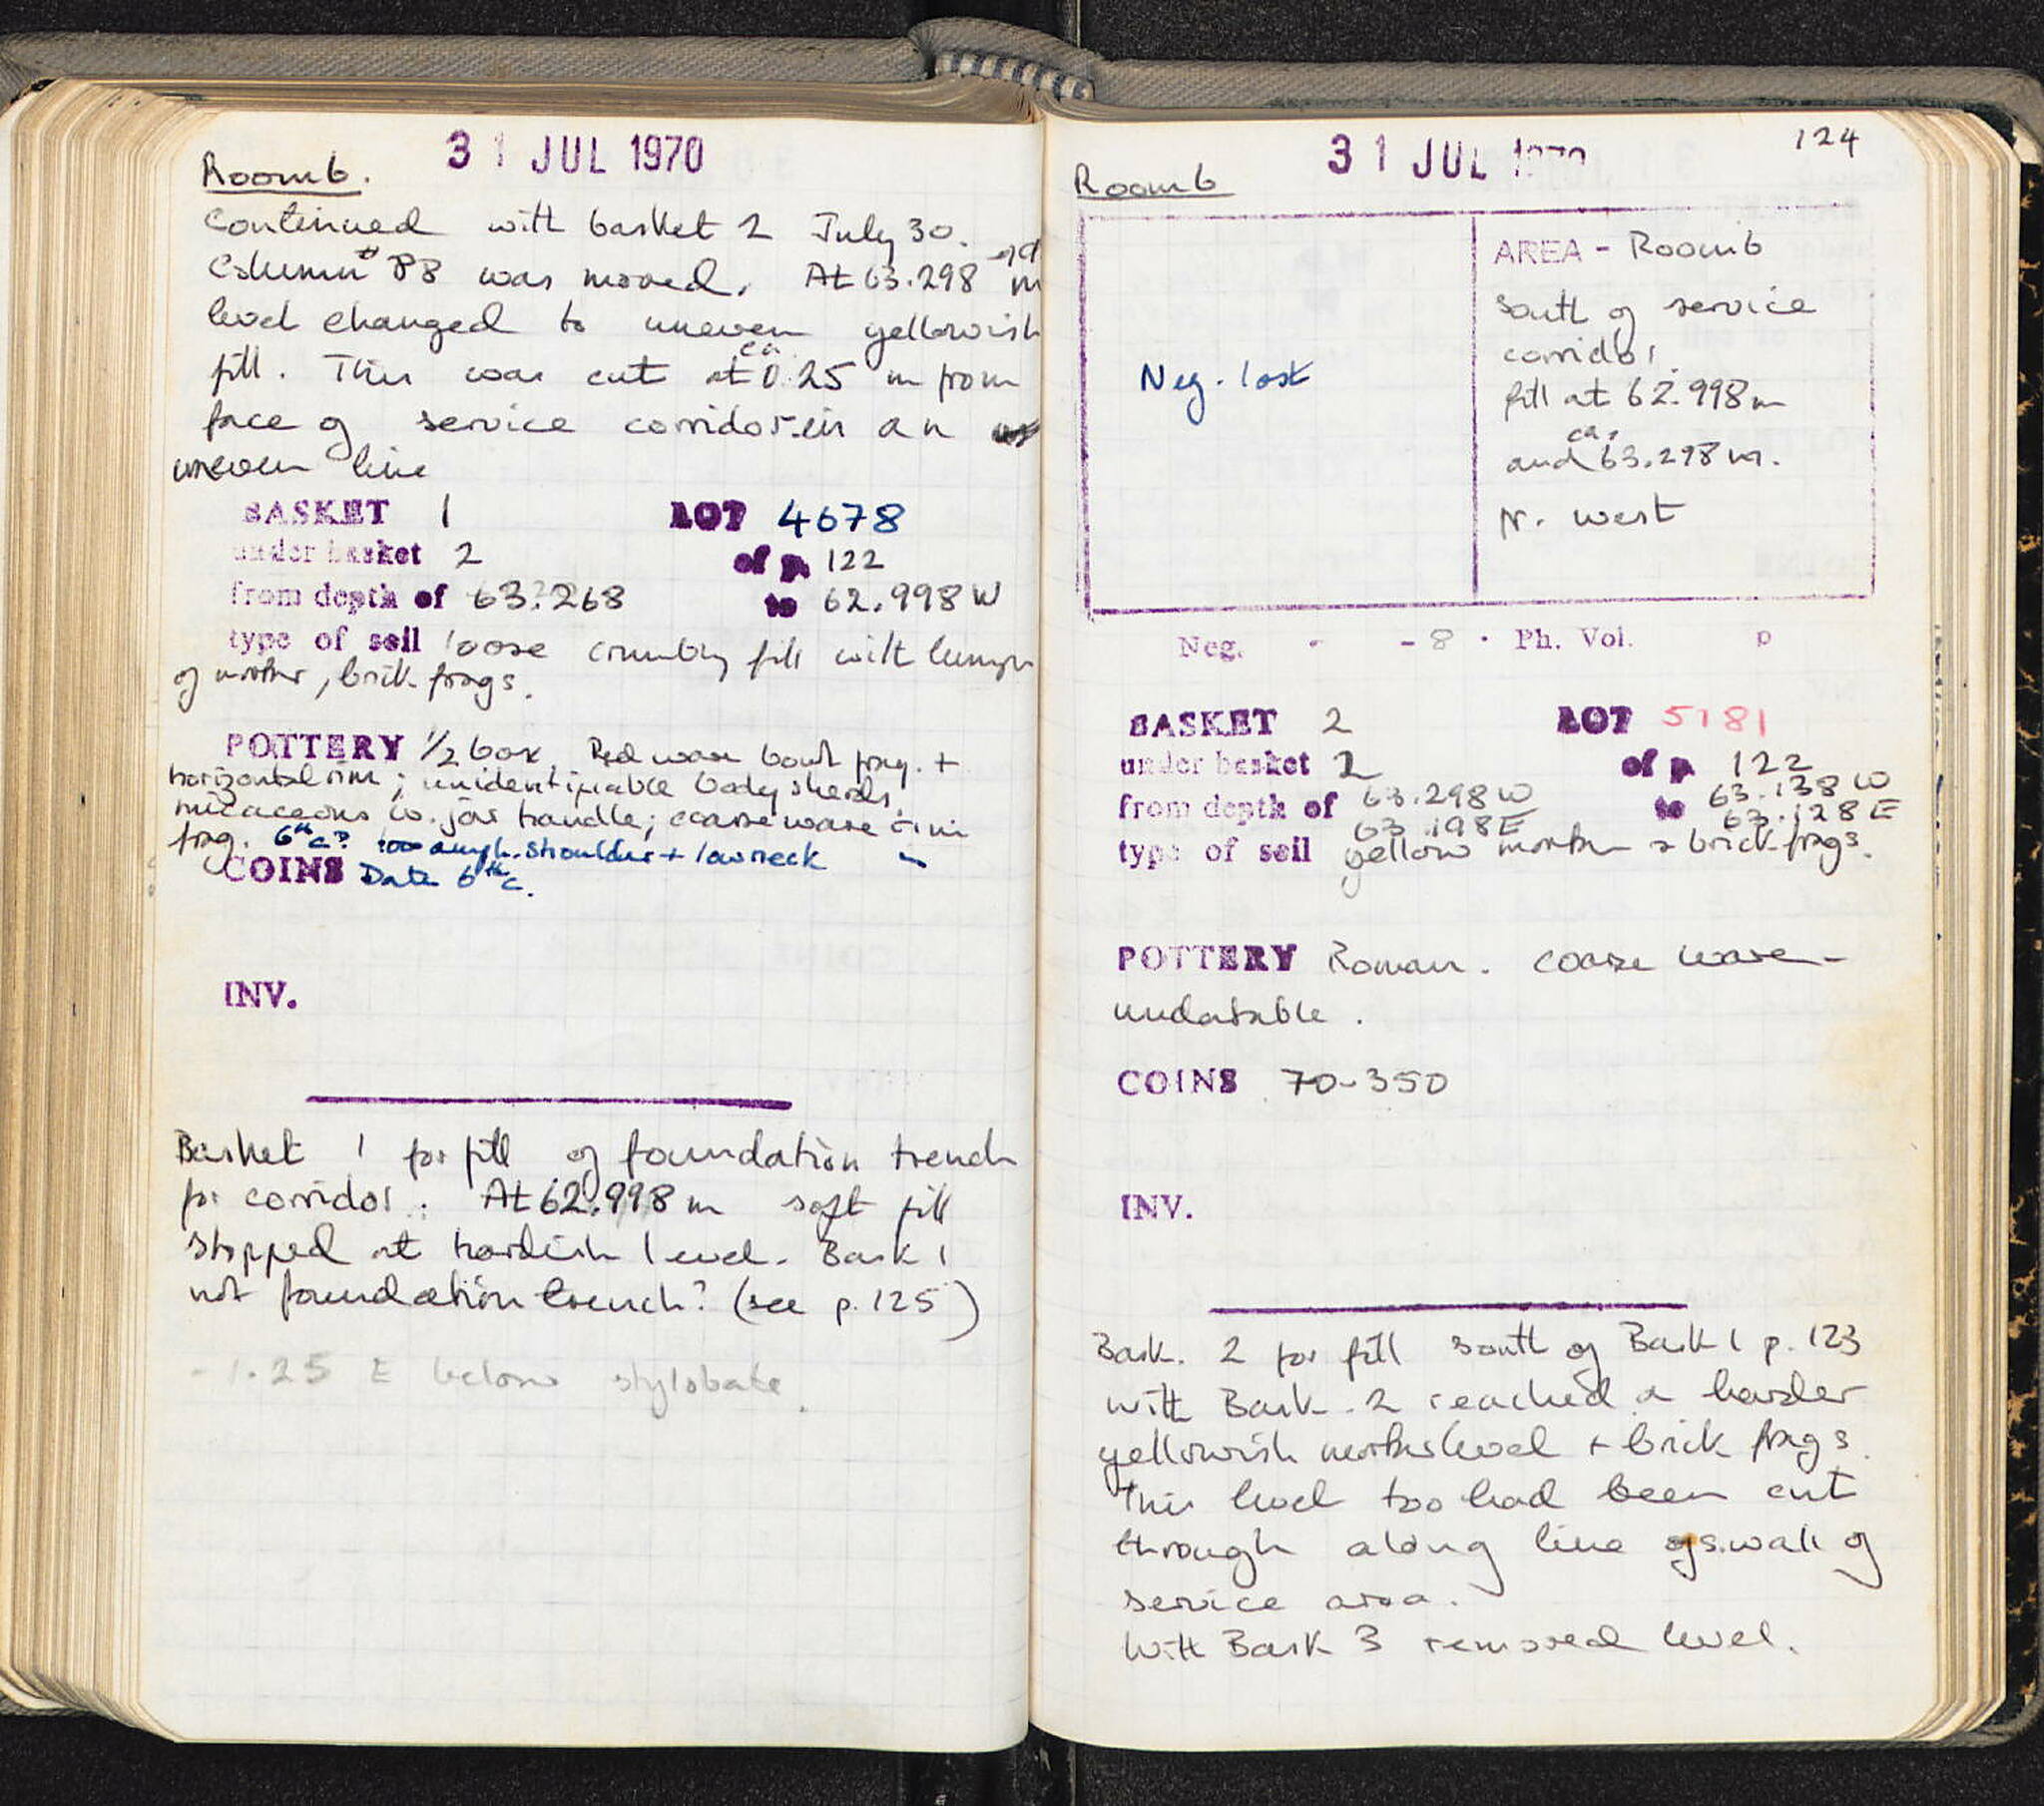 31 JUL 1970
Room 6.
Continued with basket 2 July 30.
Column # 88 was moved. At 63.298 m
level changed to uneven yellowish
fill. This was cut at ca. 0.25 m from
face of service corridor in an
uneven line
BASKET 1 LOT 4678
under basket 2 of p. 122
from depth of 63.268 to 62.998 W
type of soil loose crumbly fill with lumps
of mortar, brick frags.
POTTERY 1/2 box. Red ware bowl frag. +
horizontal rim; unidentifiable body sherds,
micaceous w. jar handle; coarse ware rim
frag. 6th c? amph. shoulder + low neck
COINS Date 6th c.
INV.
Basket 1 for fill of foundation trench
for corridor. At 62.998 m soft fill
stopped at hardish level. Bask 1
not foundation trench? (see p. 125)
- 1.25 E below stylobate.
124
31 JUL 1970
Room 6
Neg. lost
AREA - Room 6
South of service
corridor
fill at 62.998m
and ca. 63.298 m.
N. West
Neg. - - 8 · Ph. Vol. p
BASKET 2 LOT 5181
under basket 2 of p. 122
from depth of 63.298 W to 63.138 W
63.198 E 63.128 E
type of soil yellow mortar + brick frags.
POTTERY Roman. coarse ware -
undatable.
COINS 70-350
INV.
Bask. 2 for fill south of Bask 1 p. 123
With Bask. 2 reached a harder
yellowish mortar level + brick frags.
This level too had been cut
through along line of s. wall of
service area.
With Bask 3 removed level.